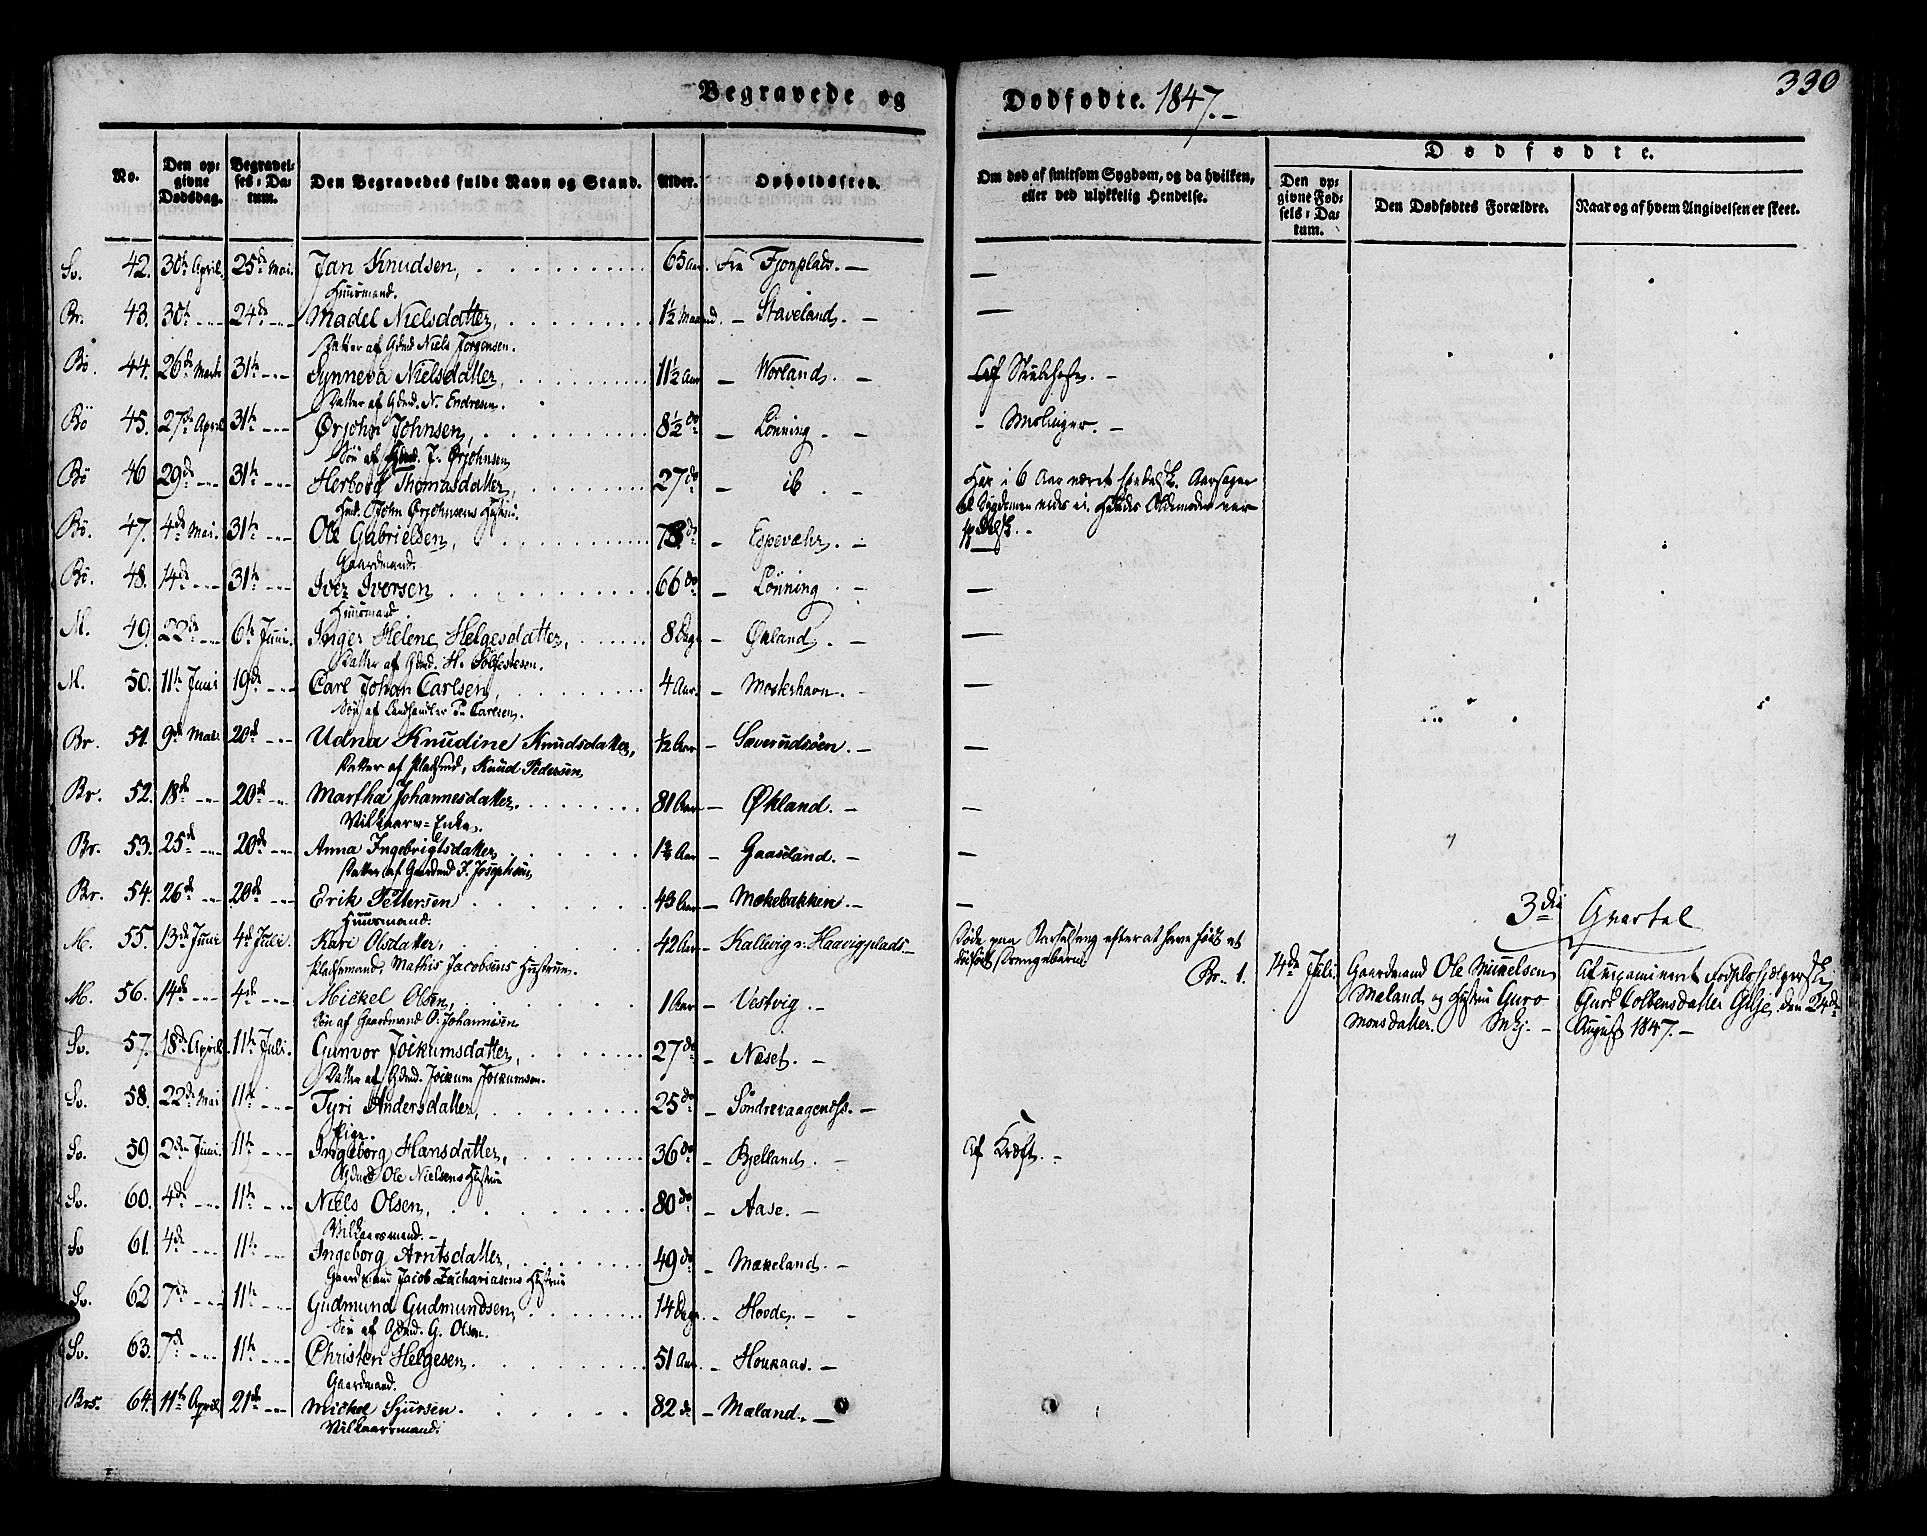 330
Begravede og Dødfødte. 1847.
No.
Den opgivne Dødsdag.
Begravelses-Datum.
Den Begravedes fulde Navn og Stand.
Alder.
Opholdssted.
Om død af smitsom Sygdom, og da hvilken, eller ved ulykkelig Hendelse.
Dødfødte.
Den opgivne Fødsels-Datum.
Den Dødfødtes Forældre.
Naar og af hvem Angivelsen er skeet.
Sv. 42. 30te April. 25de Mai. Jan Knudsen, 65 Aar. Fra Fjonplads. —
Huusmand.
Br. 43. 30te 24de Madel Nielsdatter, 1½ Maaned. — Staveland. —
Datter af Gdmd Niels Jørgensen.
Bö. 44. 26de Marts 31te Synneva Nielsdatter, 11½ Aar — Vorland. — Af Strubehoste. —
Datter af Gdmd. N. Endresen.
Bö 45. 27de April 31te Ørjohn Johnsen, 8½ do — Lönning. — - Meslinger. —
Søn af Gmd. J. Ørjohnsen
Bö 46 29de 31te Herborg Thomasdatter, 27 do — ib. — Har i 6 Aar været spedalsk. Aarsagen
Gmd. John Ørjohnsens Hustru. til Sygdomen vides ei. Hendes Oldemoder var
Bö. 47. 4de Mai. 31te Ole Gabrielsen, 73 do — Espevæhr. — spedalsk. —
Gaardmand.
Bö. 48. 14de 31te Iver Iversen 66 do — Lönning. — —
Huusmand
M. 49. 22de 6te Juni. Inger Helene Helgesdatter, 8 Dage — Økland. —
Datter af Gdmd. H. Solfestesen.
M. 50. 11te Juni 19de Carl Johan Carlsen, 4 Aar. — Mosterhavn. —
Søn af Landhandler P. Carlsen.
Br. 51. 9de Mai. 20de Udna Knudine Knudsdatter, ½ Aar — Sæverudsöen. —
Datter af Pladsmd, Knud Pedersen
Br. 52. 18de 20de Martha Johannesdatter. 81 Aar — Økland. —
Vilkaars-Enke.
Br. 53. 25de 20de Anna Ingebrigtsdatter, Aar — Gaasland. —
Datter af Gaardmd I. Josephsen
Br. 54. 26de 20de Erik Pettersen 43 Aar — Mækebakken —
Huusmand.
3die Qvartal
M. 55. 13de Juni 4de Juli. Kari Olsdatter, 42 Aar — Kallevig v. Haavigplads — Døde paa Barselseng efter at have født et
Pladsmand, Mathis Jacobsens Hustrue. dødfødt Drengebarn
Br. 1. 14de Juli. Gaardmand Ole Mickelsen Af examineret Jordemoder
Mæland og Hustru Guro Guro den 24de
Monsdatter. August 1847. —
M. 56. 14de 4de Mickel Olsen, 1 Aar — Vestvig. —
Søn af Gaardmand O. Johannesen
Sv. 57. 18de April 11te Juli. Gunvor Joikumsdatter, 27 do — Næset. —
Datter af Gdmd. Joikum Joikumsen.
Sv. 58. 22de Mai 11te Tyri Andersdatter, 25 do — Söndrevaagen —
Pige.
Sv. 59 2den Juni. 11te Ingeborg Hansdatter, 36 do — Bjelland. — Af Kræft. —
Gdmd Ole Nielsens Hustru
Sv. 60. 4de 11te Niels Olsen, 80 do — Aase. —
Vilkaarsmand. —
Sv 61. 4de 11te Ingeborg Arntsdatter, 49 do — Mækeland. —
Gaardmand Jacob Zachariasens Hustru
Sv. 62 7de 11te Gudmund Gudmundsen, 14 Dage — Hovde. —
Søn af Gdmd. G. Olsen.
Sv. 63. 7de 11te Christen Helgesen. 51 Aar. — Houkaas. —
Gaardmand.
Brs. 64. 11te April 21de Mickel Sjursen. 82 do — Mæland. —
Vilkaarsmand.